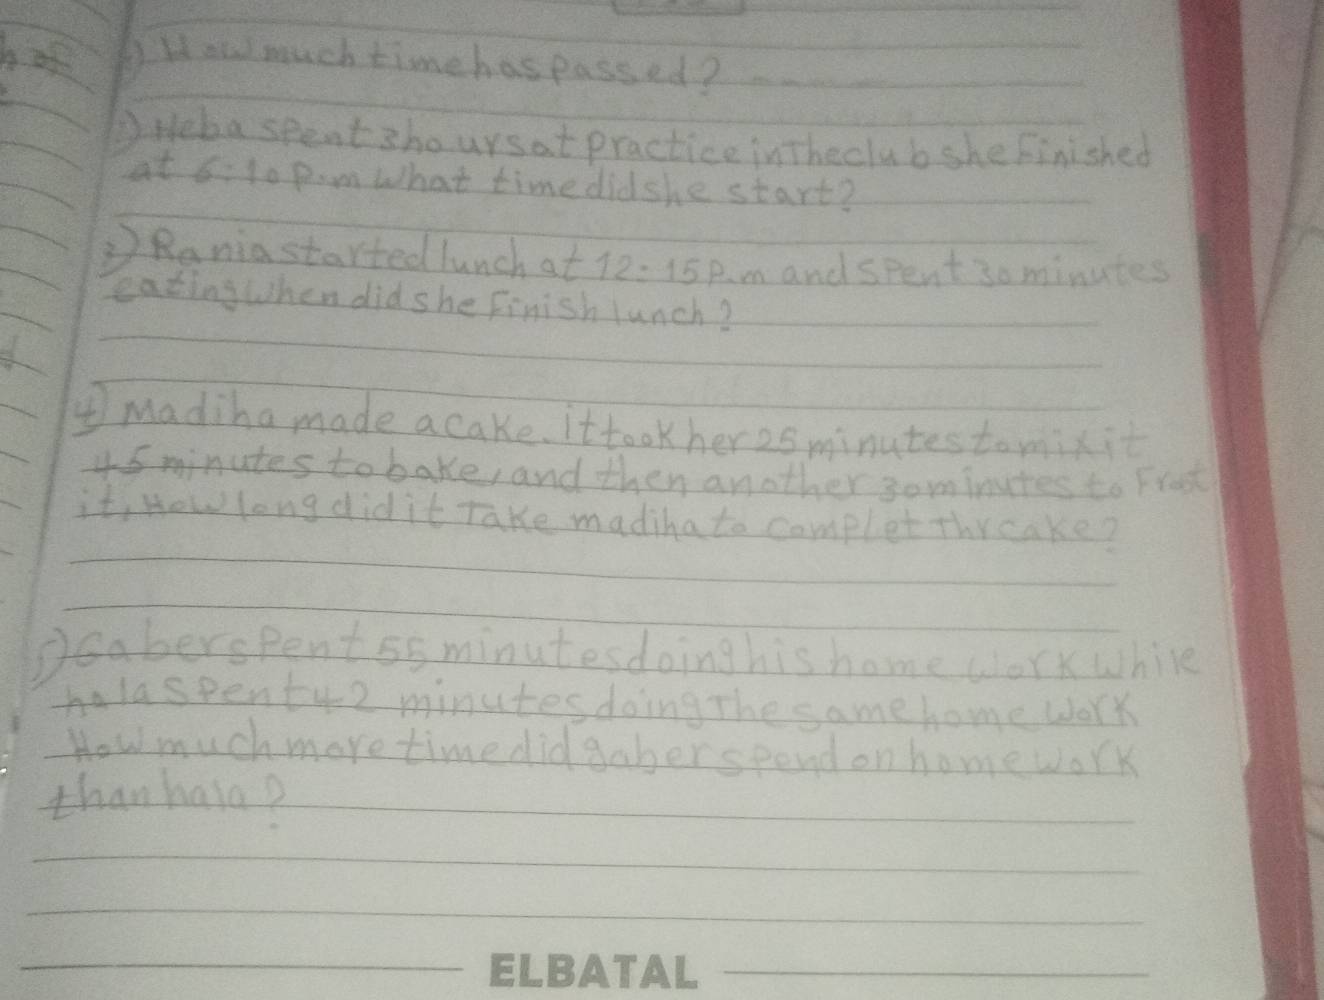 h of
1) How much time has passed?
2) Heba spent 3 hours at practice in The club she Finished
at 6:10 P.m What time did she start?
3) Rania started lunch at 12:15 P.m and spent 30 minutes
eating When did she Finish lunch?
4) Madiha made a cake. it took her 25 minutes to mix it
45 minutes to bake, and then another 30 minutes to Frost
it, How long did it Take madiha to complet Thr cake?
5) Gaber spent 55 minutes doing his home work While
hala spent 42 minutes doing The same home work
How much more time did gaber spend on home work
than hala?
ELBATAL